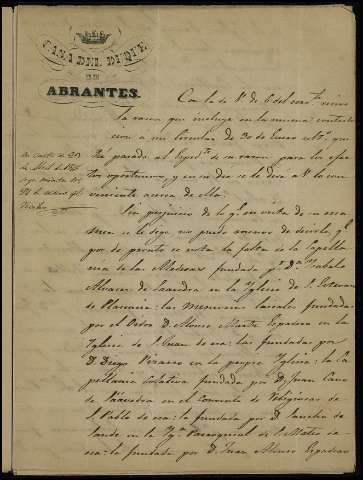 CASA DEL DUQUE
DE
ABRANTES.
Con la de V. de 6 del corr.te vino
la razon que incluye en la misma contesta
cion a mi Circular de 30 de Enero ult.º que
há pasado al Exped.te de su razon para los efec
tos oportunos, y en su dia se le dirá a V. lo con
veniente acerca de ella.
Sin perjuicio de lo q.e en vista de su exa
men se le diga, no puedo menos de decirle, q.e
por de pronto se nota la falta de la Capella
nia de las fundada p.r D.ª Isabel
Alvarez de en la Iglesia de S. Esteban
de Plasencia: las memorias laicales fundadas
por el D. Alonso Martin Espadero en la
Iglesia de S. Juan de esa: las fundadas por
D. Diego Pizarro en la propia Iglesia: la Ca
pellania Colativa fundada por D. Juan Cano
de Saavedra en el Convento de Religiosas de
S. Pablo de esa: la fundada por D. Sancho de
Sande en la Yg.ª Parroquial de S. Mateo de
esa: la fundada por D. Juan Alonso Espadero